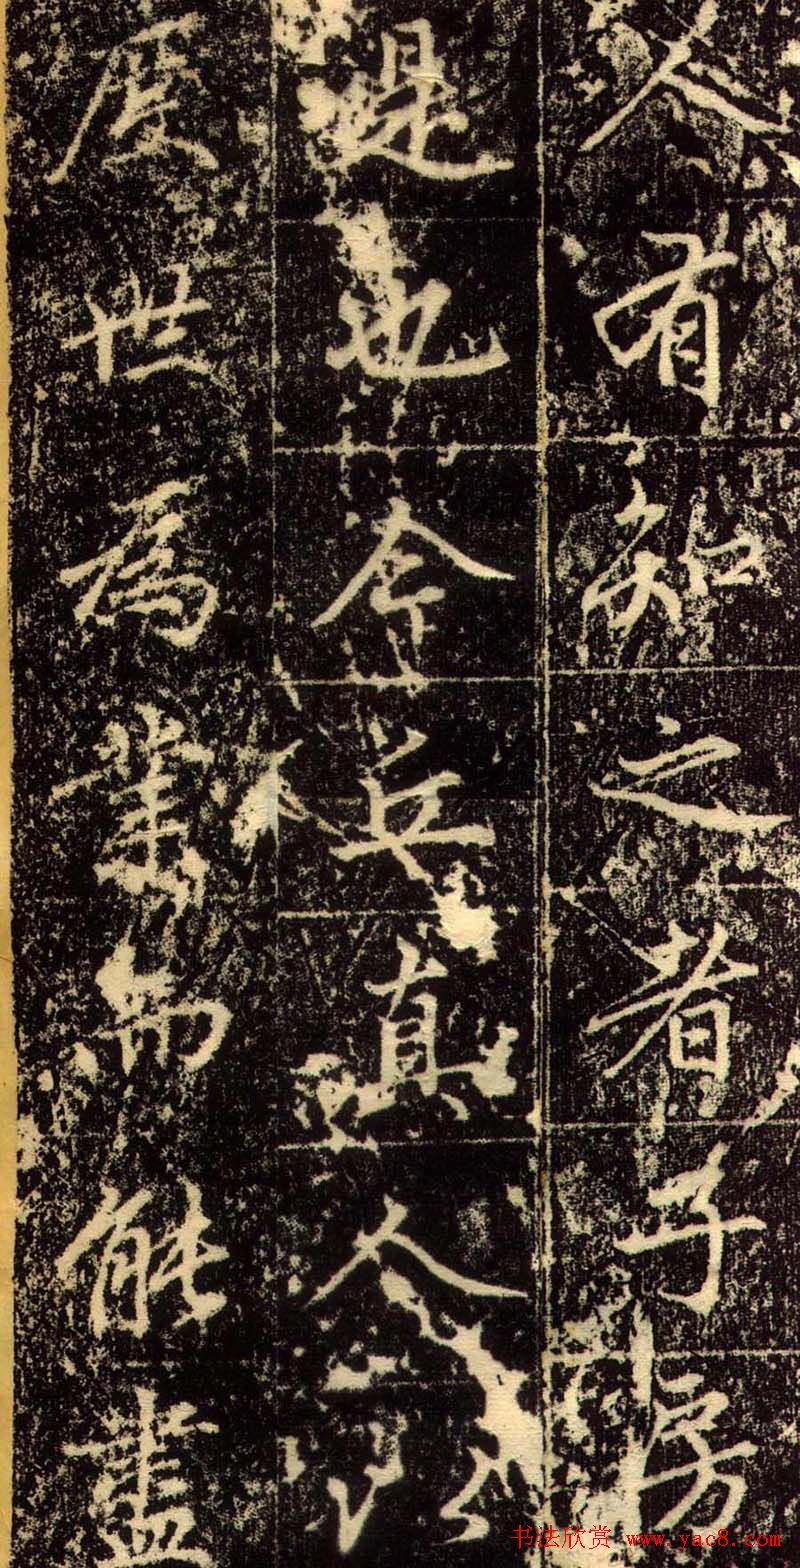 人有知之者子房
是也今丘真人以
度世為業而能盡
书法欣赏 www.yac8.com